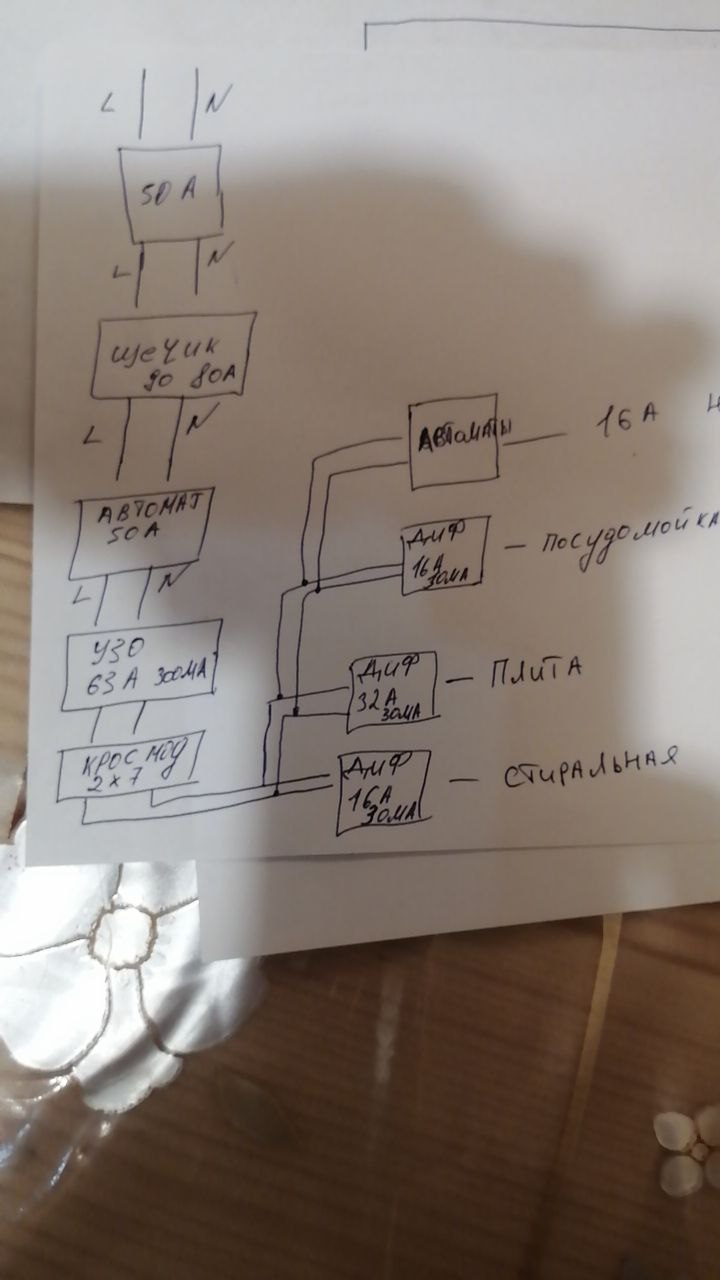 L N
50 А
L N
ЩЕЧИК
до 80А
L N
АВТОМАТ
50А
L N
УЗО
63А 300МА
КРОС МОД
2×7
АВТОМАТЫ
16А Н
ДИФ
16А
30МА
– ПОСУДОМОЙКА
ДИФ
32А
30МА
– ПЛИТА
ДИФ
16А
30МА
– СТИРАЛЬНАЯ